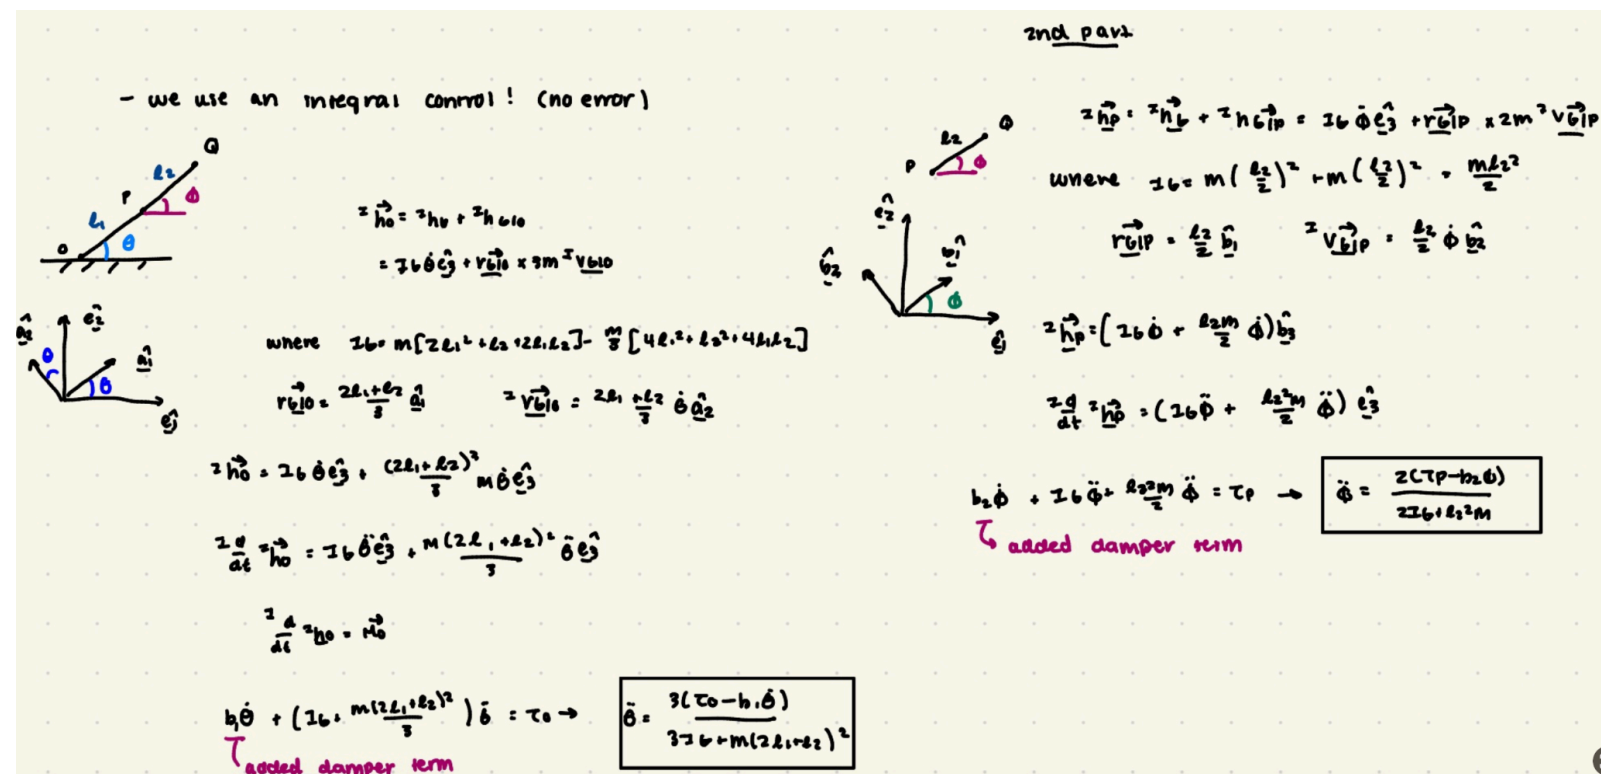 - we use an integral control! (no error)
Q
l2
P
ϕ
l1
O
θ
ᴵh⃗o = ᴵhG + ᴵhG/O
= IG θ̇ ê3 + r⃗G/O × 3m ᴵv⃗G/O
â2
ê2
â1
θ
θ
ê1
where IG = m[2l1² + l2 + 2l1l2] - m/3 [4l1² + l2² + 4l1l2]
r⃗G/O = (2l1+l2)/3 â1    ᴵv⃗G/O = (2l1+l2)/3 θ̇ â2
ᴵh⃗o = IG θ̇ ê3 + (2l1+l2)²/3 m θ̇ ê3
ᴵd/dt ᴵh⃗o = IG θ̈ ê3 + m(2l1+l2)²/3 θ̈ ê3
ᴵd/dt ᴵho = M⃗o
b1θ̇ + (IG + m(2l1+l2)²/3) θ̈ = τo → θ̈ = 3(τo - b1θ̇) / (3IG + m(2l1+l2)²)
added damper term
2nd part
Q
l2
P
ϕ
ᴵh⃗p = ᴵh⃗G + ᴵh⃗G/P = IG ϕ̇ ê3 + r⃗G/P × 2m ᴵv⃗G/P
where IG = m(l2/2)² + m(l2/2)² = ml2²/2
r⃗G/P = l2/2 b̂1    ᴵv⃗G/P = l2/2 ϕ̇ b̂2
ê2
b̂1
b̂2
ϕ
ê1
ᴵh⃗p = (IG ϕ̇ + l2m/2 ϕ̇) b̂3
ᴵd/dt ᴵh⃗p = (IG ϕ̈ + l2²m/2 ϕ̈) ê3
b2ϕ̇ + IG ϕ̈ + l2²m/2 ϕ̈ = τp → ϕ̈ = 2(τp - b2ϕ̇) / (2IG + l2²m)
added damper term